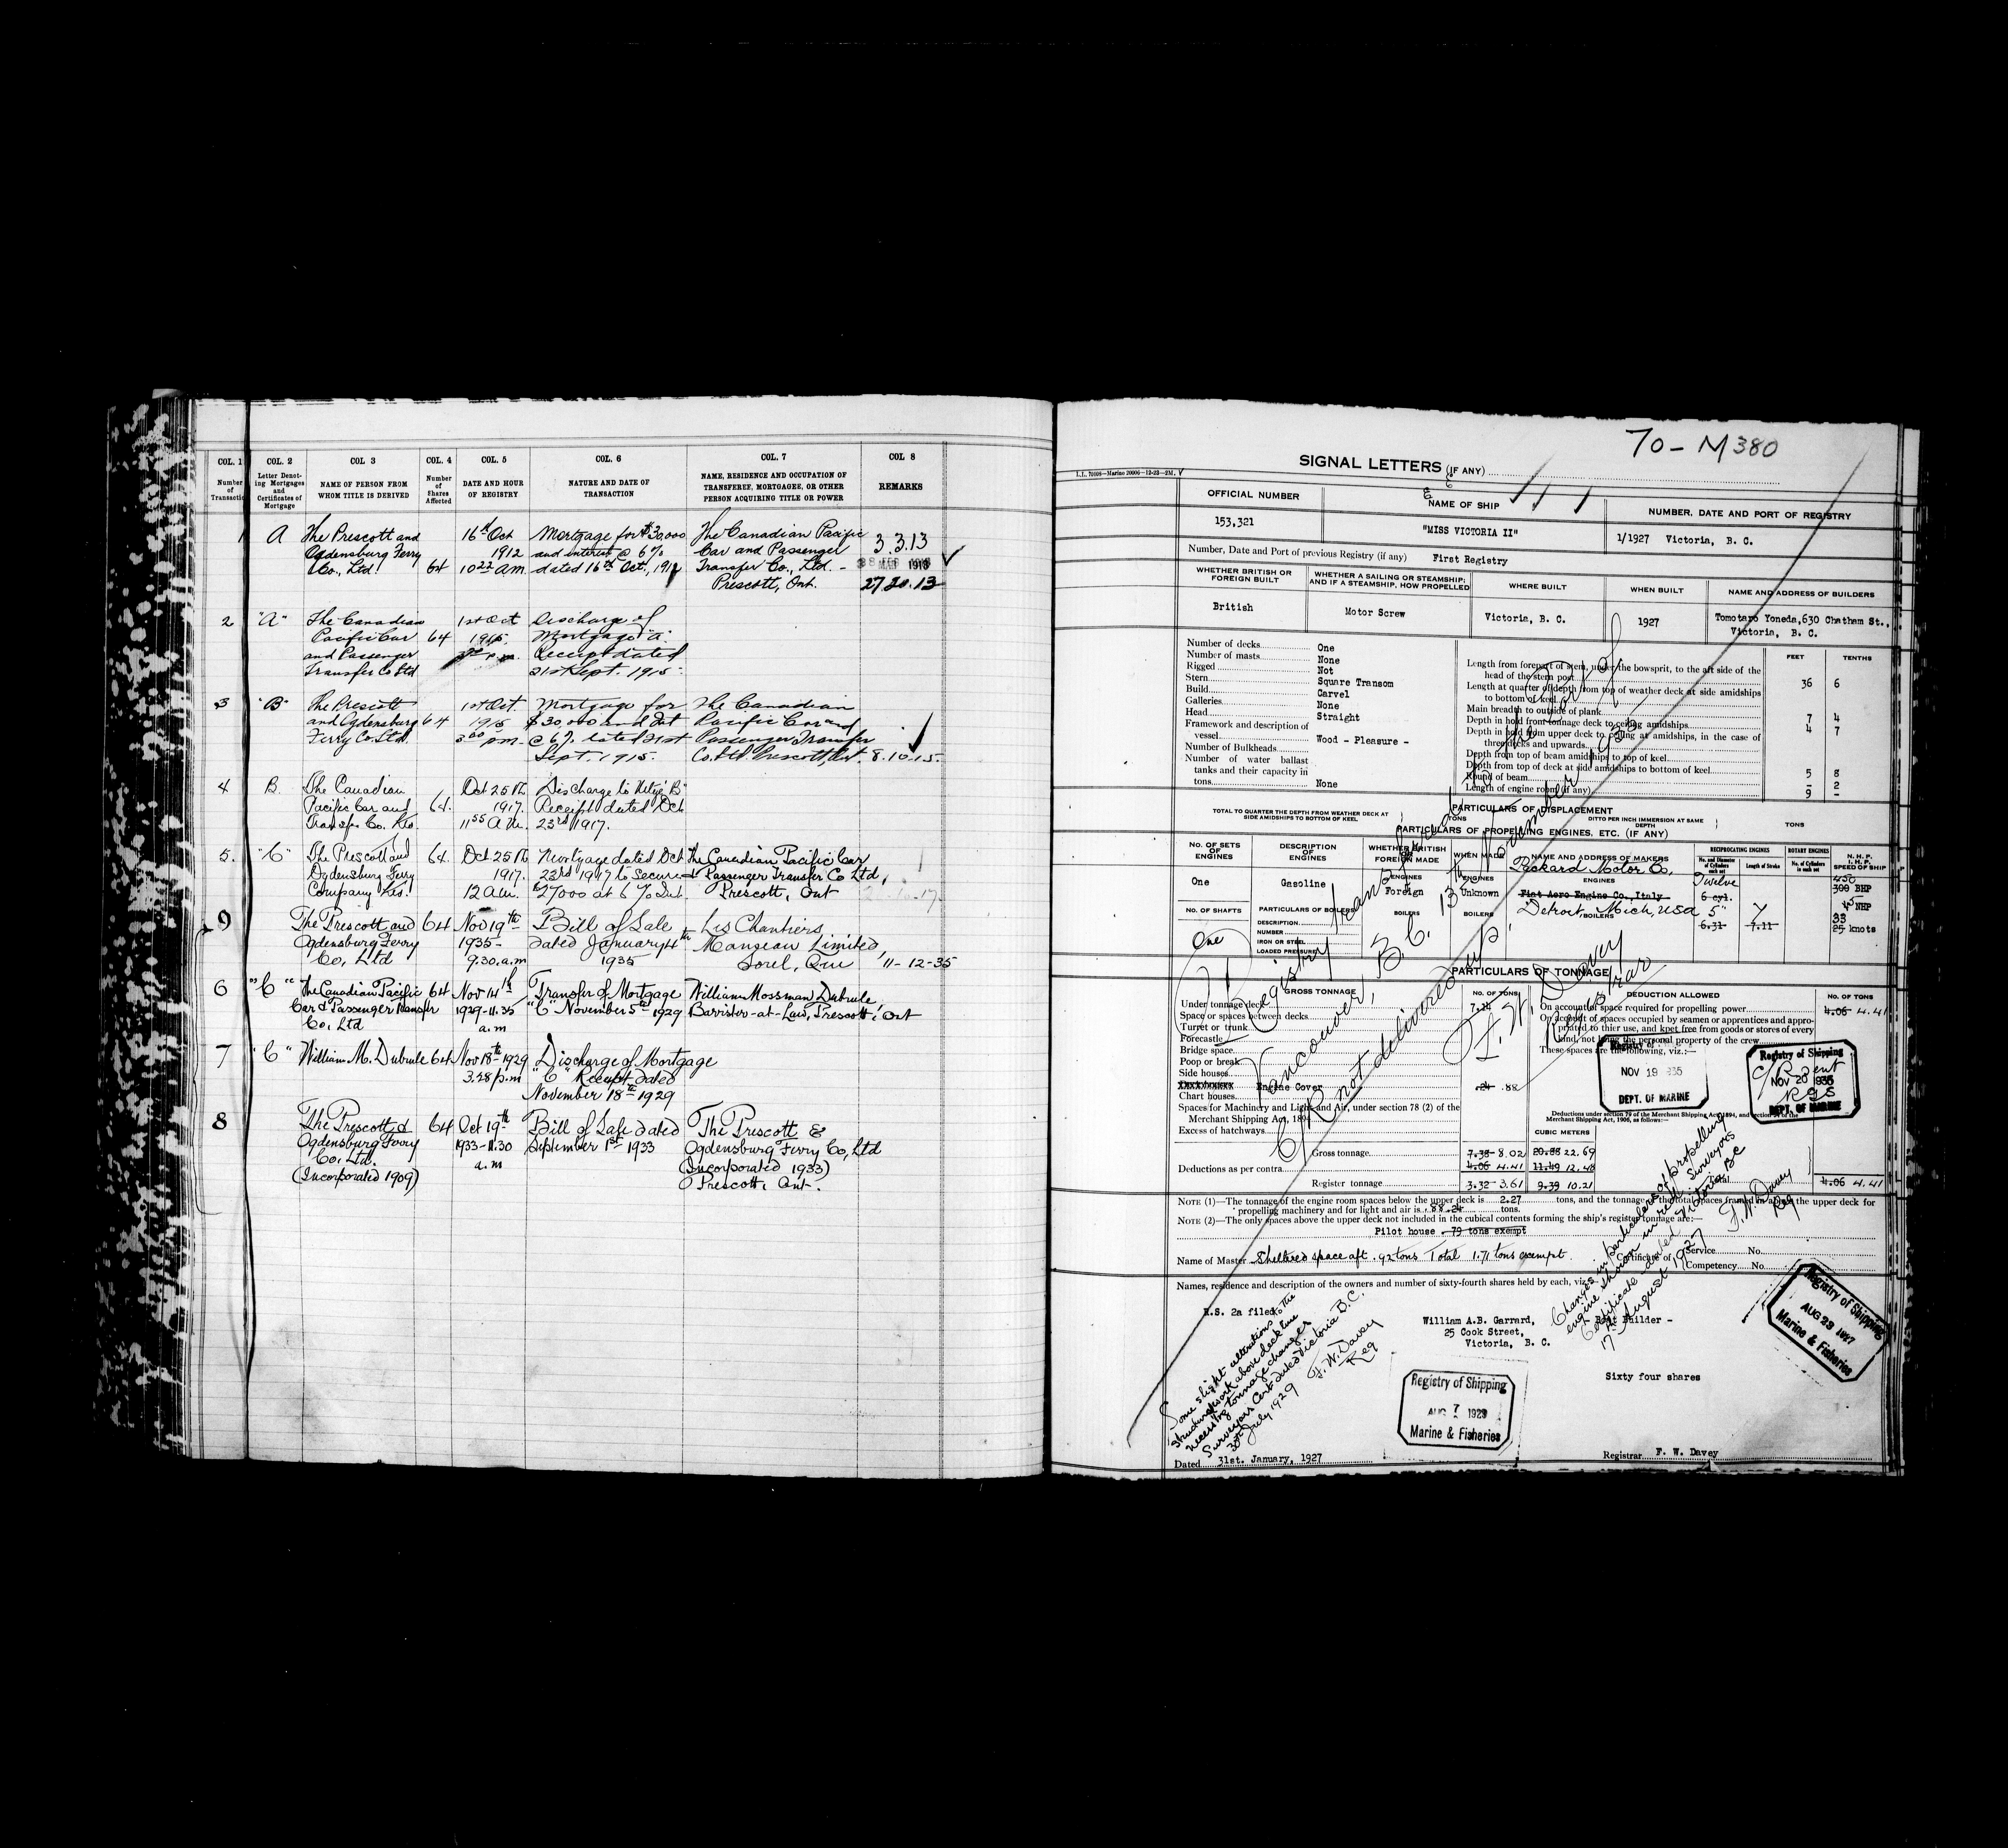 COL. 1 COL. 2 COL. 3 COL. 4 COL. 5 COL. 6 COL. 7 COL 8
Number of Transaction
Letter Denoting Mortgages and Certificates of Mortgage
NAME OF PERSON FROM WHOM TITLE IS DERIVED
Number of Shares Affected
DATE AND HOUR OF REGISTRY
NATURE AND DATE OF TRANSACTION
NAME, RESIDENCE AND OCCUPATION OF TRANSFEREE, MORTGAGEE, OR OTHER PERSON ACQUIRING TITLE OR POWER
REMARKS
1 A The Prescott and 16th Oct Mortgage for $30,000 The Canadian Pacific
Ogdensburg Ferry 1912 and interest @ 6% Car and Passenger 3.3.13
Co., Ltd. 64 10 22 am. dated 16th Oct., 1912 Transfer Co., Ltd. - 1913
Prescott, Ont. 27.20.13
2 "A" The Canadian 1st Oct Discharge of
Pacific Car 64 1915. Mortgage "A"
and Passenger p.m. Receipt dated
Transfer Co Ltd 21st Sept. 1915.
3 "B" The Prescott 1st Oct. Mortgage for The Canadian
and Ogdensburg 64 1915 $30,000 and Int Pacific Car and
Ferry Co. Ltd. 3 00 pm. @ 6% dated 21st Passenger Transfer
Sept. 1915. Co. Ltd. Prescott, Ont. 8.10.15.
4 B. The Canadian Oct 25th Discharge to Mtge "B"
Pacific Car and 64. 1917. Receipt dated Oct
Transfer Co. 11 55 A.M. 23rd 1917.
5. "C" The Prescott and 64. Oct 25th Mortgage dated Oct The Canadian Pacific Car
Ogdensburg Ferry 1917. 23rd 1917 to Secure & Passenger Transfer Co Ltd,
Company 12 a.m. $27000 at 6% Int. Prescott, Ont
9 The Prescott and 64 Nov 19th Bill of Sale Les Chantiers
Ogdensburg Ferry 1935- dated January 4th Manseau Limited,
Co, Ltd 9.30.a.m 1935 Sorel, Que 11-12-35
6 "C" The Canadian Pacific 64 Nov 14th Transfer of Mortgage William Mossman Dubrule,
Car & Passenger Transfer 1929-11.35 "C" November 5th 1929 Barrister-at-Law, Prescott, Ont
Co, Ltd a.m
7 "C" William M. Dubrule 64 Nov 18th 1929 Discharge of Mortgage
3.28 p.m "C" Receipt dated
November 18th 1929
8 The Prescott & 64 Oct 19th Bill of Sale dated The Prescott &
Ogdensburg Ferry 1933-11.30 September 1st 1933 Ogdensburg Ferry Co, Ltd
Co, Ltd. a.m (Incorporated 1933)
(Incorporated 1909) Prescott, Ont.
70-M380
SIGNAL LETTERS (IF ANY)
OFFICIAL NUMBER NAME OF SHIP NUMBER, DATE AND PORT OF REGISTRY
153,321 "MISS VICTORIA II" 1/1927 Victoria, B. C.
Number, Date and Port of previous Registry (if any) First Registry
WHETHER BRITISH OR FOREIGN BUILT
WHETHER A SAILING OR STEAMSHIP; AND IF A STEAMSHIP, HOW PROPELLED
WHERE BUILT WHEN BUILT NAME AND ADDRESS OF BUILDERS
British Motor Screw Victoria, B. C. 1927 Tomotaro Yoneda, 630 Chatham St.,
Victoria, B. C.
FEET TENTHS
Number of decks One
Number of masts None
Rigged Not
Stern Square Transom
Build Carvel
Galleries None
Head Straight
Framework and description of vessel Wood - Pleasure -
Number of Bulkheads
Number of water ballast tanks and their capacity in tons None
Length from forepart of stem, under the bowsprit, to the aft side of the head of the stern post 36 6
Length at quarter of depth from top of weather deck at side amidships to bottom of keel
Main breadth to outside of plank 7 4
Depth in hold from tonnage deck to ceiling amidships 4 7
Depth in hold from upper deck to ceiling at amidships, in the case of three decks and upwards
Depth from top of beam amidships to top of keel
Depth from top of deck at side amidships to bottom of keel 5 8
Round of beam - 2
Length of engine room (if any) 9 -
PARTICULARS OF DISPLACEMENT
TOTAL TO QUARTER THE DEPTH FROM WEATHER DECK AT SIDE AMIDSHIPS TO BOTTOM OF KEEL TONS
DITTO PER INCH IMMERSION AT SAME DEPTH TONS
PARTICULARS OF PROPELLING ENGINES, ETC. (IF ANY)
NO. OF SETS OF ENGINES DESCRIPTION OF ENGINES WHETHER BRITISH OR FOREIGN MADE WHEN MADE NAME AND ADDRESS OF MAKERS RECIPROCATING ENGINES ROTARY ENGINES N.H.P. I.H.P. SPEED OF SHIP
No. and Diameter of Cylinders in each set Length of Stroke No. of Cylinders in each set
Packard Motor Co,
One Gasoline ENGINES Foreign ENGINES Unknown ENGINES Fiat Aero Engine Co., Italy Twelve 6 cyl. 450 300 BHP
NO. OF SHAFTS PARTICULARS OF BOILERS BOILERS BOILERS BOILERS Detroit, Mich, USA 5" 7 NHP
6.31 7.11 33 25 knots
One DESCRIPTION
NUMBER
IRON OR STEEL
LOADED PRESSURE
PARTICULARS OF TONNAGE
GROSS TONNAGE NO. OF TONS DEDUCTION ALLOWED NO. OF TONS
Under tonnage deck 7.14
Space or spaces between decks
Turret or trunk
Forecastle
Bridge space
Poop or break
Side houses
Engine Cover .24 .88
Chart houses
Spaces for Machinery and Light and Air, under section 78 (2) of the Merchant Shipping Act, 1894
Excess of hatchways
On account of space required for propelling power 4.06 4.41
On account of spaces occupied by seamen or apprentices and appropriated to thier use, and kpet free from goods or stores of every kind, not being the personal property of the crew
These spaces are the following, viz.:—
Registry of
NOV 19 1935
DEPT. OF MARINE
Registry of Shipping
NOV 20 1935
DEPT. OF MARINE
Deductions under section 79 of the Merchant Shipping Act, 1894, and section 54 of the Merchant Shipping Act, 1906, as follows:—
CUBIC METERS
Gross tonnage 7.38 8.02 20.88 22.69
Deductions as per contra 4.06 4.41 11.49 12.48
Register tonnage 3.32 3.61 9.39 10.21 Total 4.06 4.41
NOTE (1)—The tonnage of the engine room spaces below the upper deck is 2.27 tons, and the tonnage of the total spaces framed in above the upper deck for propelling machinery and for light and air is .88 .24 tons.
NOTE (2)—The only spaces above the upper deck not included in the cubical contents forming the ship's register tonnage are:—
Pilot house .79 tons exempt
Name of Master Sheltered space aft .92 tons Total 1.71 tons exempt.
Certificate of Service No.
Competency No.
Names, residence and description of the owners and number of sixty-fourth shares held by each, viz.
R.S. 2a filed
William A.B. Garrard, Boat Builder -
25 Cook Street,
Victoria, B. C.
Sixty four shares
Some slight alterations to the
structural work above deck line
necessitating tonnage changes
Surveyors Cert. dated Victoria B.C.
30th July 1929
F. W. Davey
Reg
Changes in particulars of propelling
engine shown in red Surveyors
Certificate dated Victoria BC
17th August 1927
F. W. Davey
Reg
Registry transferred to the Port of
Vancouver, B.C. 13th November 1935
C/R not delivered up.
F. W. Davey
Registrar
Registry of Shipping
AUG 23 1927
Marine & Fisheries
Registry of Shipping
AUG 7 1929
Marine & Fisheries
Dated 31st. January, 1927 Registrar F. W. Davey